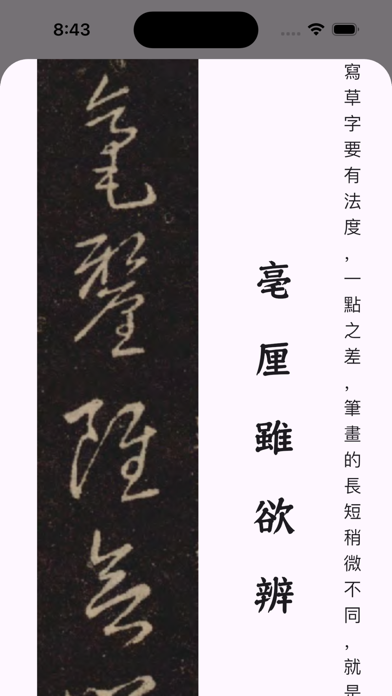 8:43
寫草字要有法度,一點之差,筆畫的長短稍微不同,就是
毫厘雖欲辨
毫釐雖欲